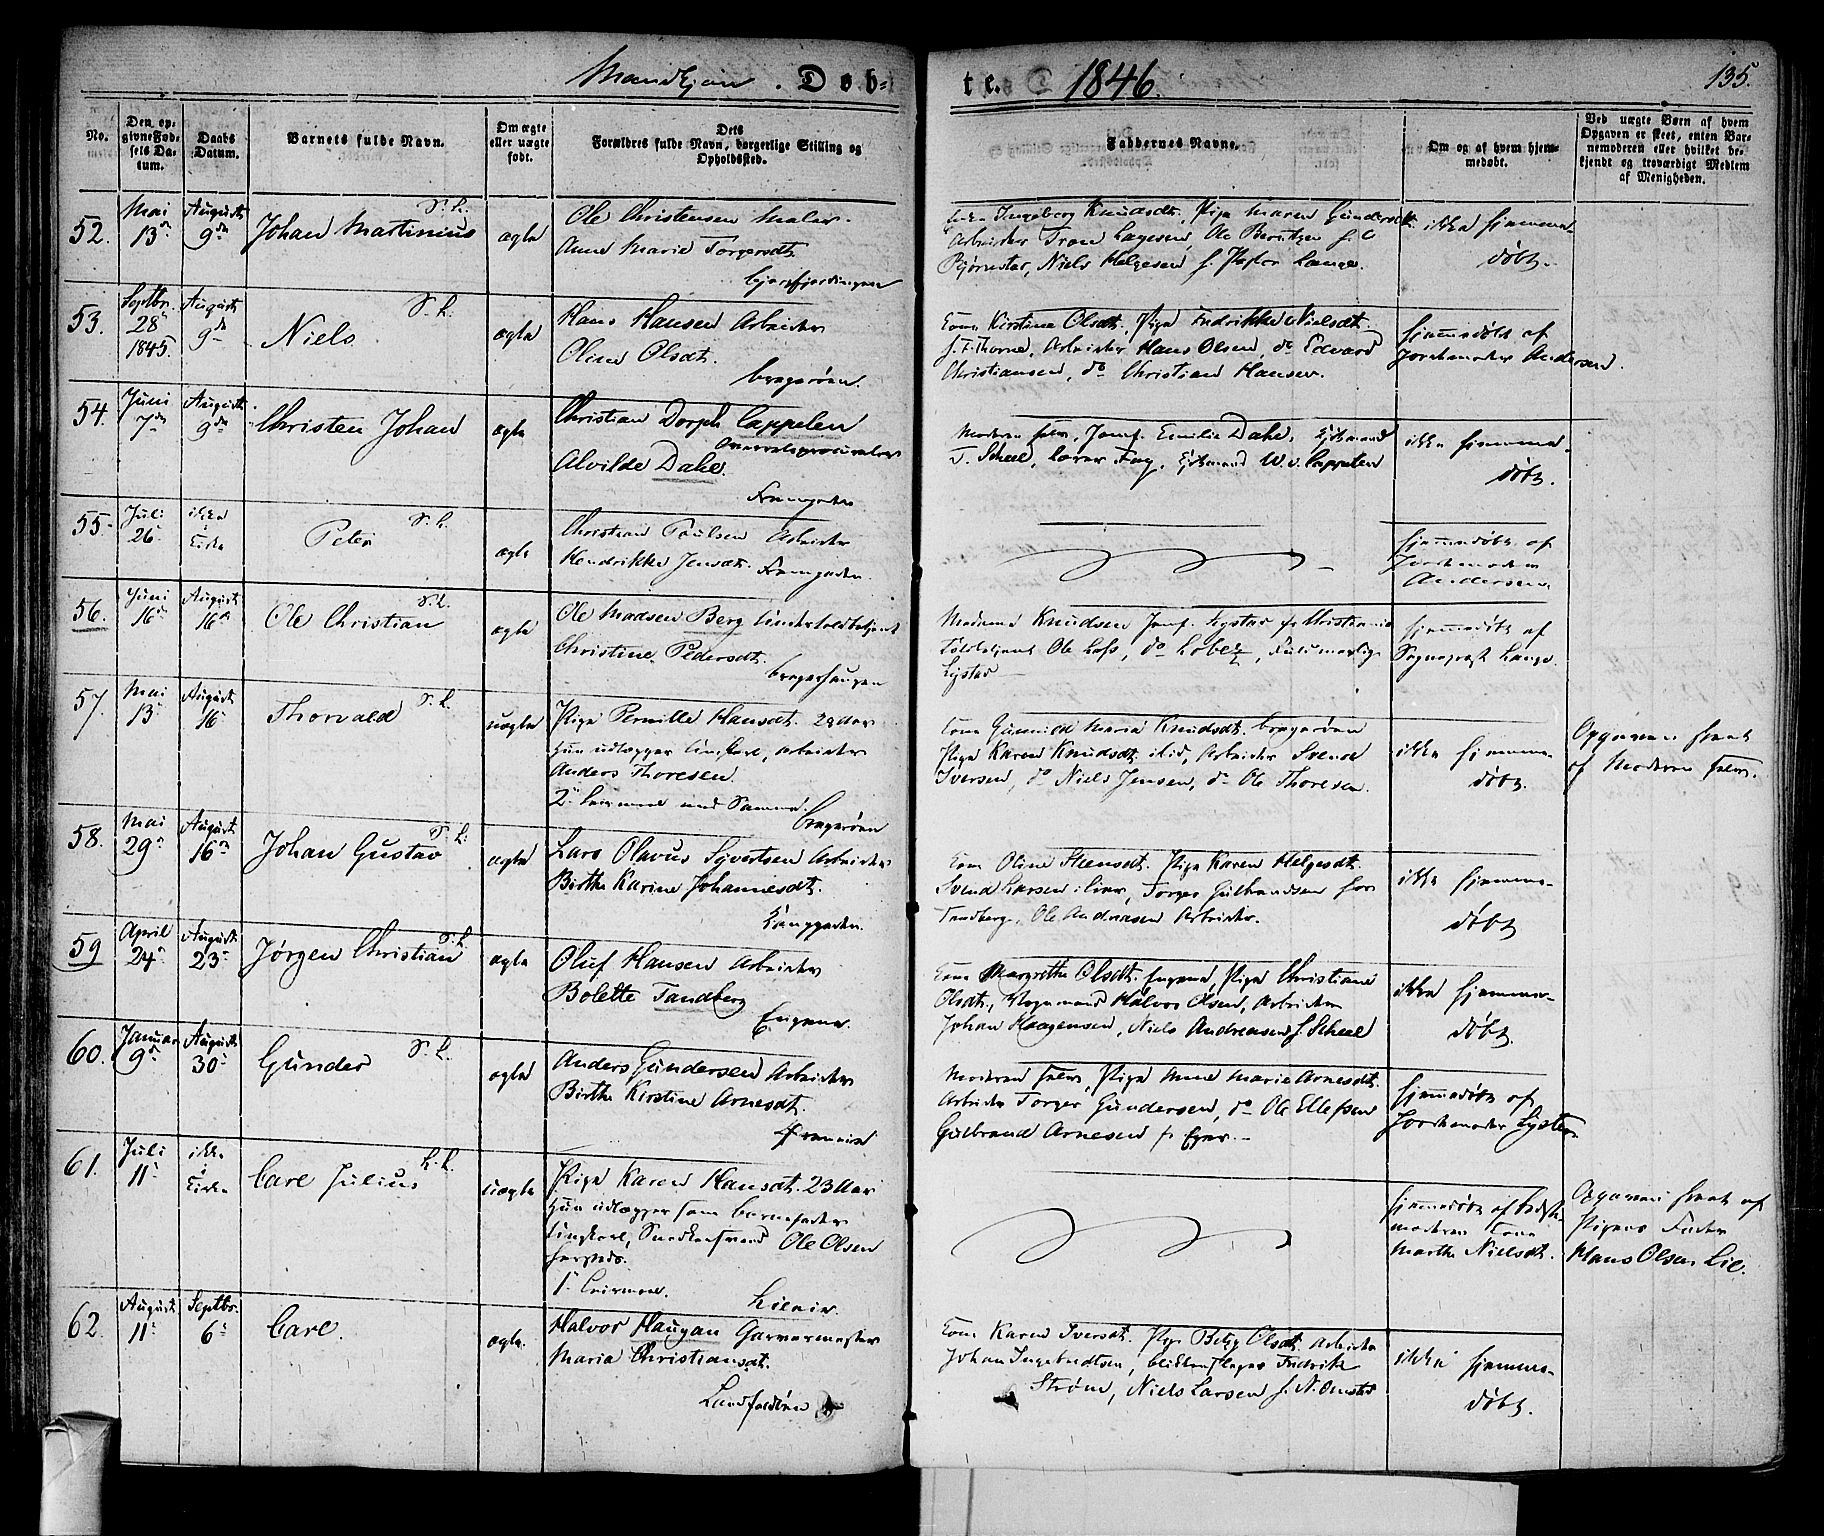 Mandkjøn. Døb-
te. 1846.
135.
No.
Den op-
givne Fød-
sels Da-
tum.
Daabs
Datum.
Barnets fulde Navn.
Om ægte
eller uægte
født.
Dets
Forældres fulde Navn, borgerlige Stilling og
Opholdssted.
Faddernes Navne.
Om og af hvem hjem-
medøbt.
Ved uægte Børn af hvem
Opgaven er skeet, enten Bar-
nemoderen eller hvilket be-
kjendt og troværdigt Medlem
af Menigheden.
52.
Mai
13de
August
9de
Johan Martinius
ægte
Ole Christensen Maler
Anne Marie Torgersdt.
Ingeborg Knudsdt. Pige Maren Gundersdt.
Arbeider Tron Lagesen, Ole Berntzen
Bjørnstad, Niels Helgesen f. Pastor Lange.
ikke hjemme-
døbt.
53.
Septbr.
28
1845.
August
9de
Niels
ægte
Hans Hansen Arbeider
Oline Olsdt.
Bragerøen.
Kone Kirstine Olsdt. Pige Fredrikke Nielsdt.
f. F. Thorne, Arbeider Hans Olsen, do Edvard
Christiansen, do Christian Hansen.
hjemmedøbt af
Jordemoder Andersen.
54.
Juni
7de
August
9de
Christen Johan
ægte
Christian Dorph Cappelen
Overretsprocurator
Alvilde Dahl.
Moderen selv, Jomf. Emilie Dahl, Kjøbmand
v. Scheel, Kjøbmand W. v. Cappelen
ikke hjemme
døbt.
55.
Juli
26
ikke
i
Kirke
Peter
ægte
Christian Poulsen Arbeider
Hendrikke Jensdt.
hjemmedøbt af
Jordemoder
Andersen.
56.
Juni
16
August
16
Ole Christian
ægte
Ole Madsen Berg Undertoldbetjent
Christine Pedersdt.
Bragerhaugen
Madame Knudsen Jomf. Lystad fr Christiania
Toldbetjent Ole Lofs, do Lobetz,
Lystad
hjemmedøbt af
Sogneprest Lange.
57.
Mai
13
August
16
Thorvald
uægte
Pige Pernille Hansdt. 29 Aar
Hun udlægger Ungkarl, Arbeider
Anders Thoresen
2. Leiermaal med Samme.
Bragerøen
Kone Gunnild Maria Knudsdt. Bragerøen
Pige Karen Knudsdt. ibid, Arbeider Svend
Iversen, do Niels Jensen, do Ole Thoresen.
ikke hjemme-
døbt.
Opgaven skeet
af Moderen selv.
58.
Mai
29
August
16
Johan Gustav
ægte
Lars Olavus Syvertsen Arbeider
Birthe Karine Johannesdt.
Kone Oline Steensdt. Pige Karen Helgesdt.
Svend Larsen, Torger Gulbrandsen hos
Tandberg, Ole Andreasen Arbeider.
ikke hjemme-
døbt.
59
April
24
August
23
Jørgen Christian
ægte
Oluf Hansen Arbeider
Bolette Tandberg
Engene.
Kone Margrethe Olsdt. Engene, Pige Christiane
Olsdt., Vognmand Halvor Olsen, Arbeider
Johan Haagensen, Niels Andreasen f. Scheel
ikke hjemme-
døbt.
60.
Januar
9de
August
30
Gunder
ægte
Anders Gundersen Arbeider
Birthe Kirstine Arnesdt.
Moderen selv, Pige Anne Marie Arnesdt.
Arbeider Torger Gundersen, do Ole Ellefsen
Gulbrand Arnesen fr Eger.
hjemmedøbt af
Jordemoder Lysten
61.
Juli
11
ikke
i
Kirke
Carl Julius
uægte
Pige Karen Hansdt. 23 Aar
Hun udlægger som Barnefader
Ungkarl, Snedkersvend Ole Olsen
1. Leiermaal.
hjemmedøbt af Bedste-
moderen Kone
Marthe Nielsdt.
Opgaven skeet af
Pigens Fader
Hans Olsen Lie.
62.
August
11
Septbr.
6
Carl.
ægte.
Halvor Haugan Garvermester
Maria Christiansdt.
Landfaldøen
Kone Karen Iversdt. Pige Betzy Olsdt. Arbeider
Johan Ingebrigtsen, Blikkenslager Fredrik
Strøm, Niels Larsen f. N. Omsted
ikke hjemme-
døbt.